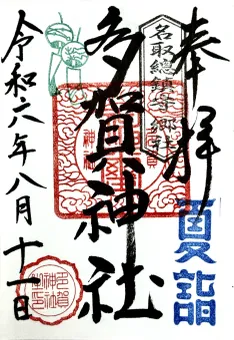 奉拝
名取總鎮守郷社
夏詣
多賀神社
令和六年八月十一日
多賀神社